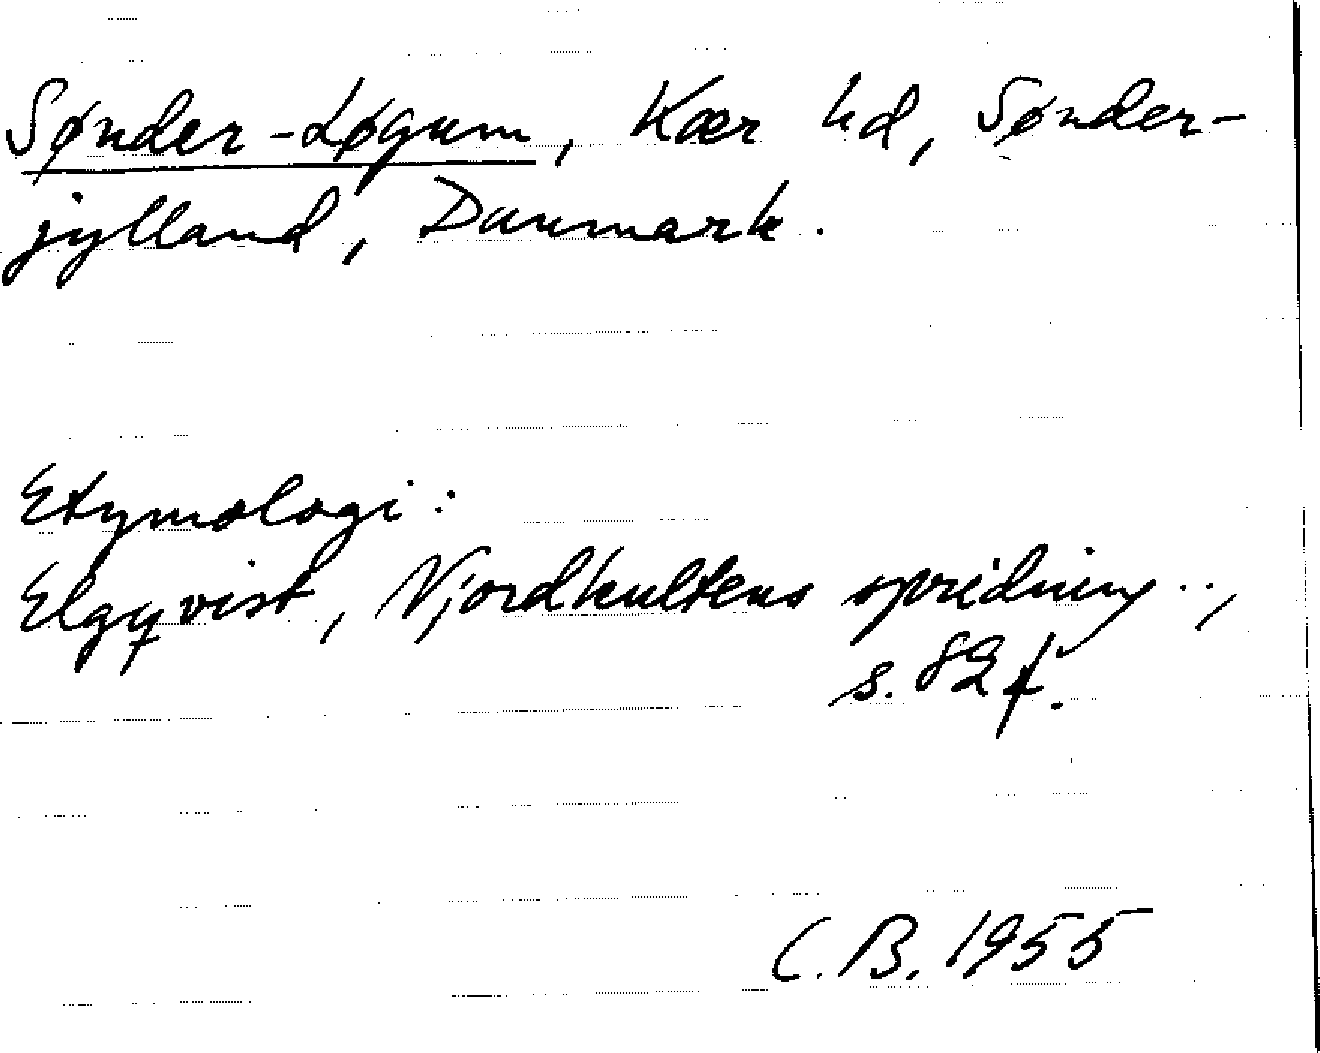 Sønder-Løgum, Kær hd, Sønder-
jylland, Danmark.
Etymologi:
Elgqvist, Njordkultens spridning..,
s. 82 f.
C.B. 1955